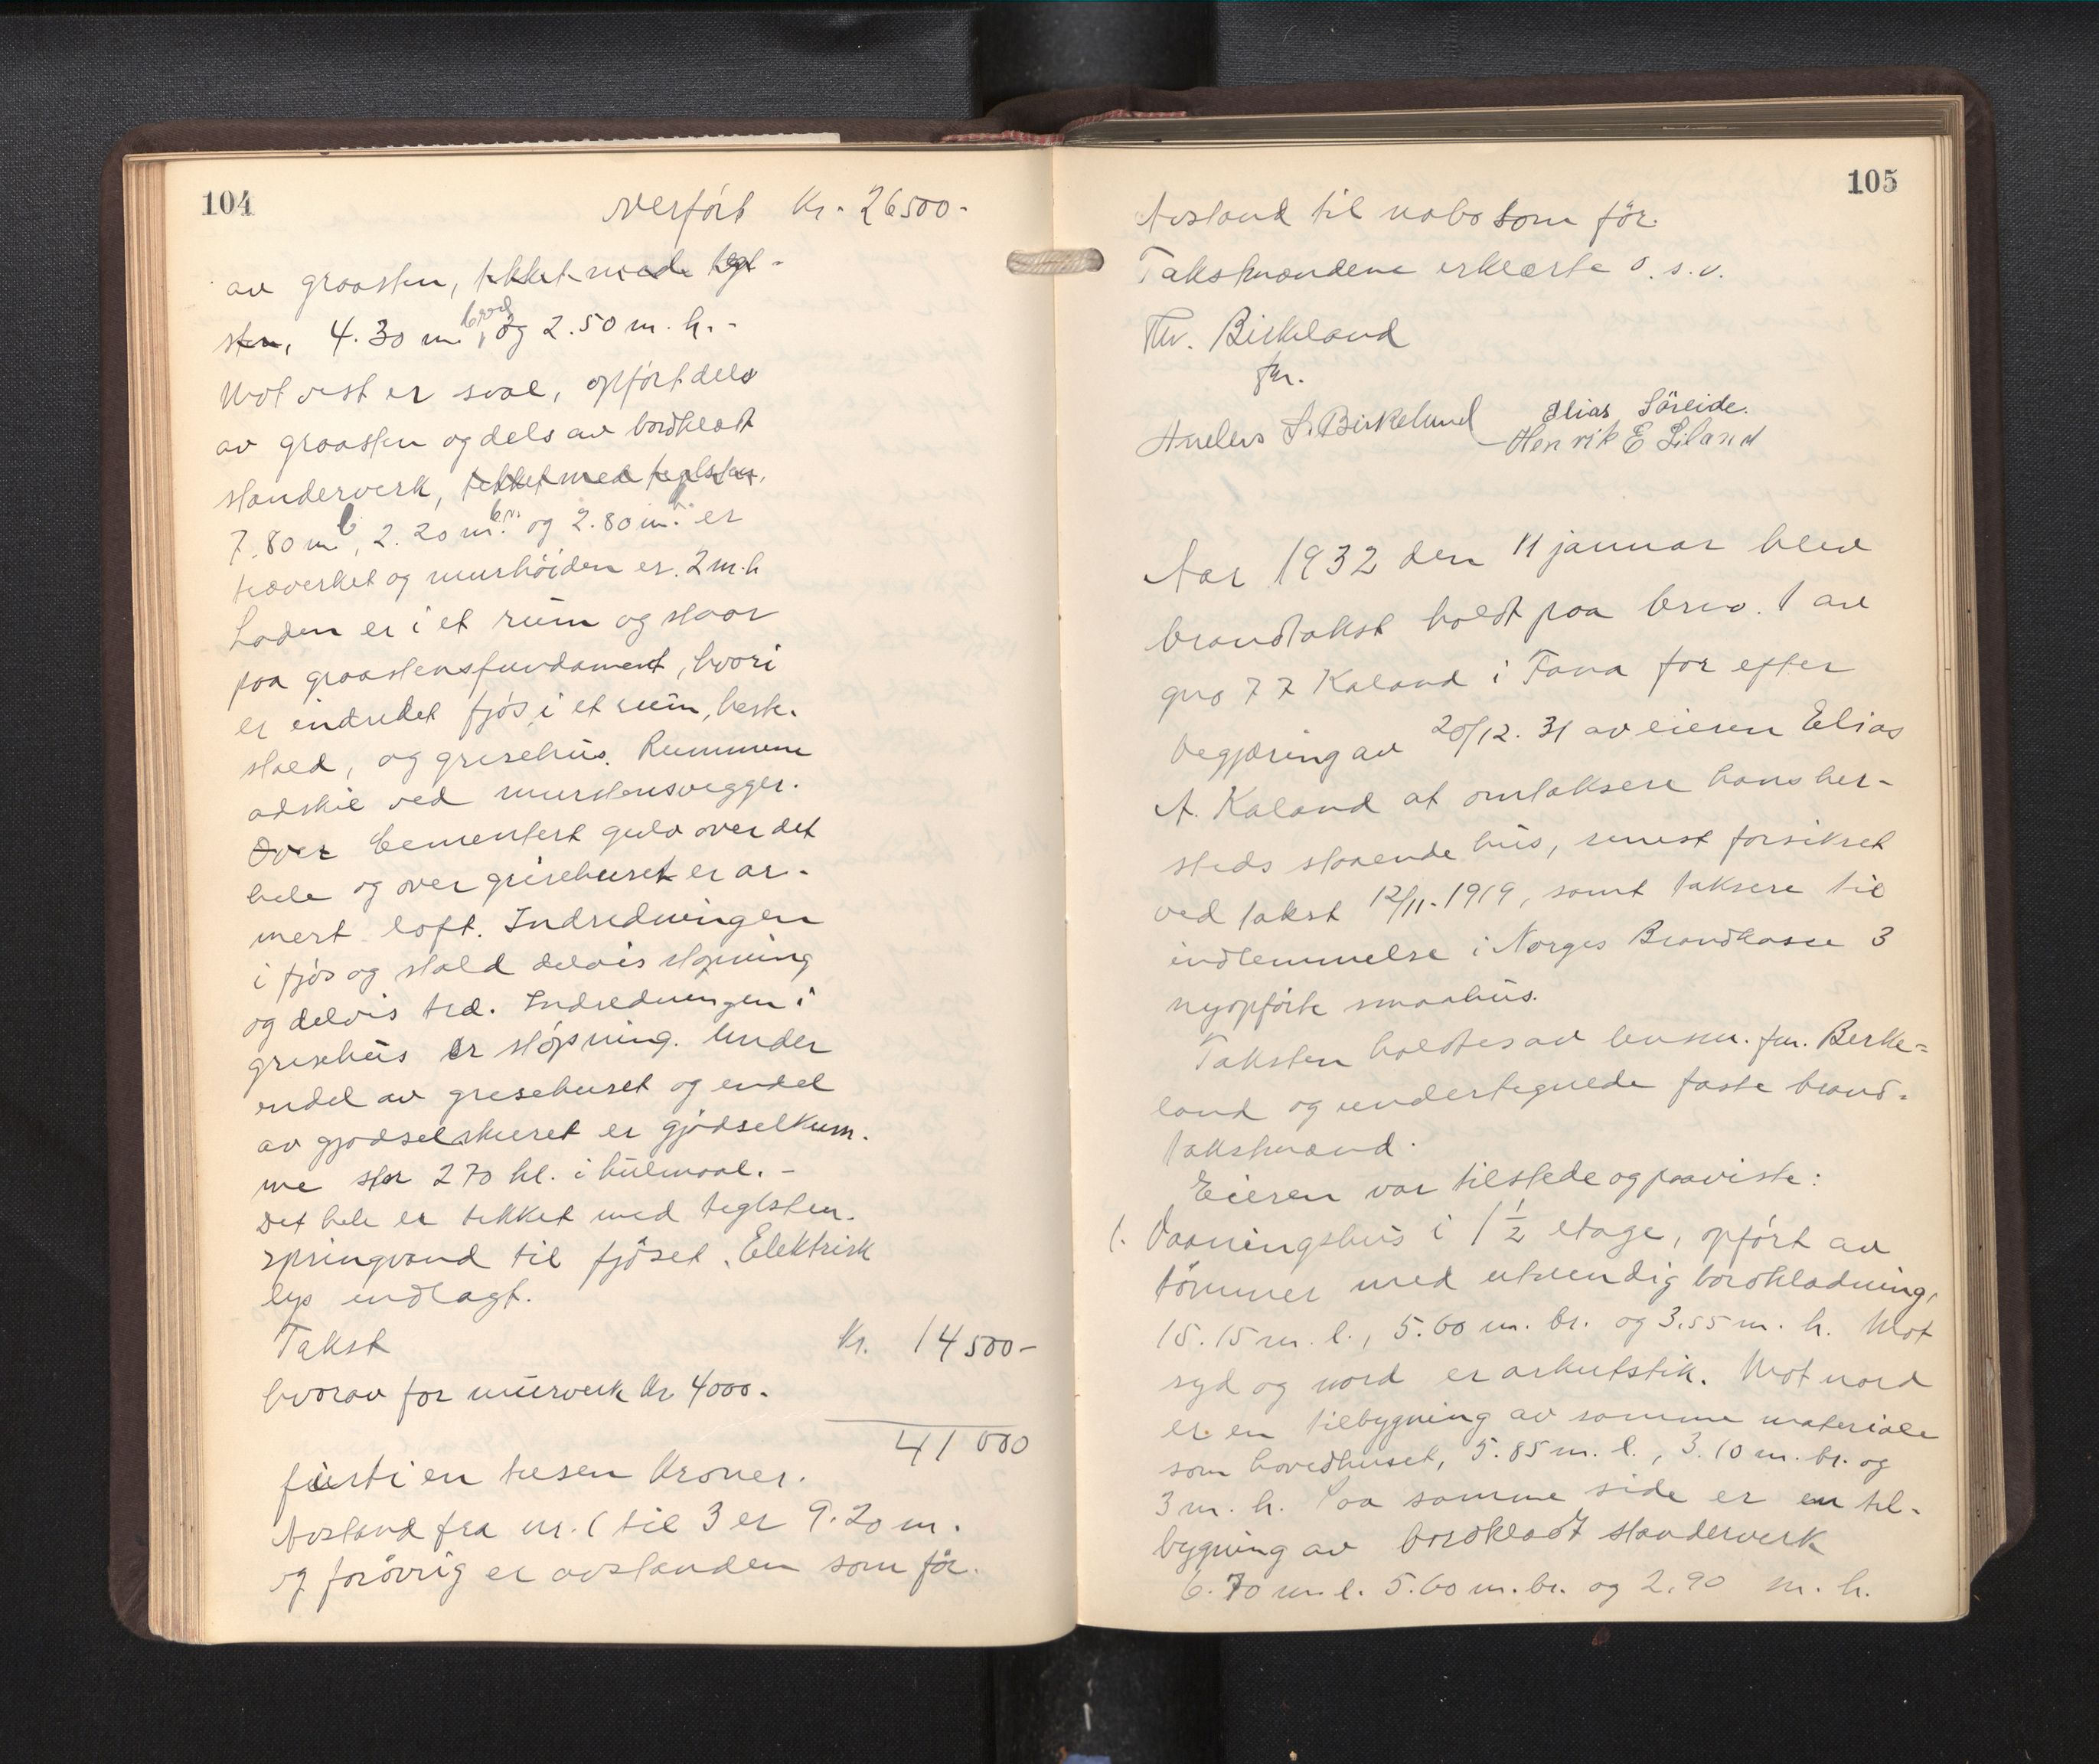 104
Overført Kr. 26500-
av graasten, tekket med tegl-
sten, 4.30 m. bred, og 2.50 m. h. -
Mot vest er sval, opført dels
av graasten og dels av bordklædt
standerverk, tekket med teglsten.
7.80 m. l., 2.20 m. br. og 2.80 m. h. er
træverket og murhøiden er 2 m. h
Laden er i et rum og staar
paa graastensfundament, hvori
er indredet fjøs i et rum, heste-
stald, og grisehus. Rummene
adskil ved murstensvegger.
Over Cementert gulv over det
hele og over grisehuset er ar-
mert loft. Indredningen
i fjøs og stald delvis støpning
og delvis træ. Indredningen i
grisehus er støpning. Under
endel av grisehuset og endel
av gjødselskuret er gjødselkum-
me stor 270 hl. i hulmaal. -
Det hele er tekket med teglsten.
Springvand til fjøset. Elektrisk
lys indlagt.
Takst Kr. 14500-
hvorav for murverk Kr 4000.
41000
førti en tusen Kroner.
Avstand fra nr. 1 til 3 er 9.20 m.
og forøvrig er avstanden som før.
105
Avstand til nabo som før.
Takstmændene erklærte o. s. v.
Thv. Birkeland
fm.
Anders S. Birkelund Elias Søreide.
Henrik E Liland
Aar 1932 den 11 januar blev
brandtakst holdt paa brno. 1 av
gno 77 Kaland i Fana for efter
begjæring av 20/12. 31 av eieren Elias
A. Kaland at omtaksere hans her-
steds staaende hus, senest forsikret
ved takst 12/11. 1919, samt taksere til
indlemmelse i Norges Brandkasse 3
nyopførte smaahus.
Taksten holdtes av lensm. fm. Birke-
land og undertegnede faste brand-
takstmænd.
Eieren var tilstede og paaviste:
1. Vaaningshus i 1 1/2 etage, opført av
tømmer med utvendig bordklædning,
15.15 m. l., 5.60 m. br. og 3.55 m. h. Mot
syd og nord er arkutstik. Mot nord
er en tilbygning av samme materiale
som hovedhuset, 5.85 m. l., 3.10 m. br. og
3 m. h. Paa samme side er en til-
bygning av bordklædt standerverk
6.70 m. l. 5.60 m. br. og 2.90 m. h.